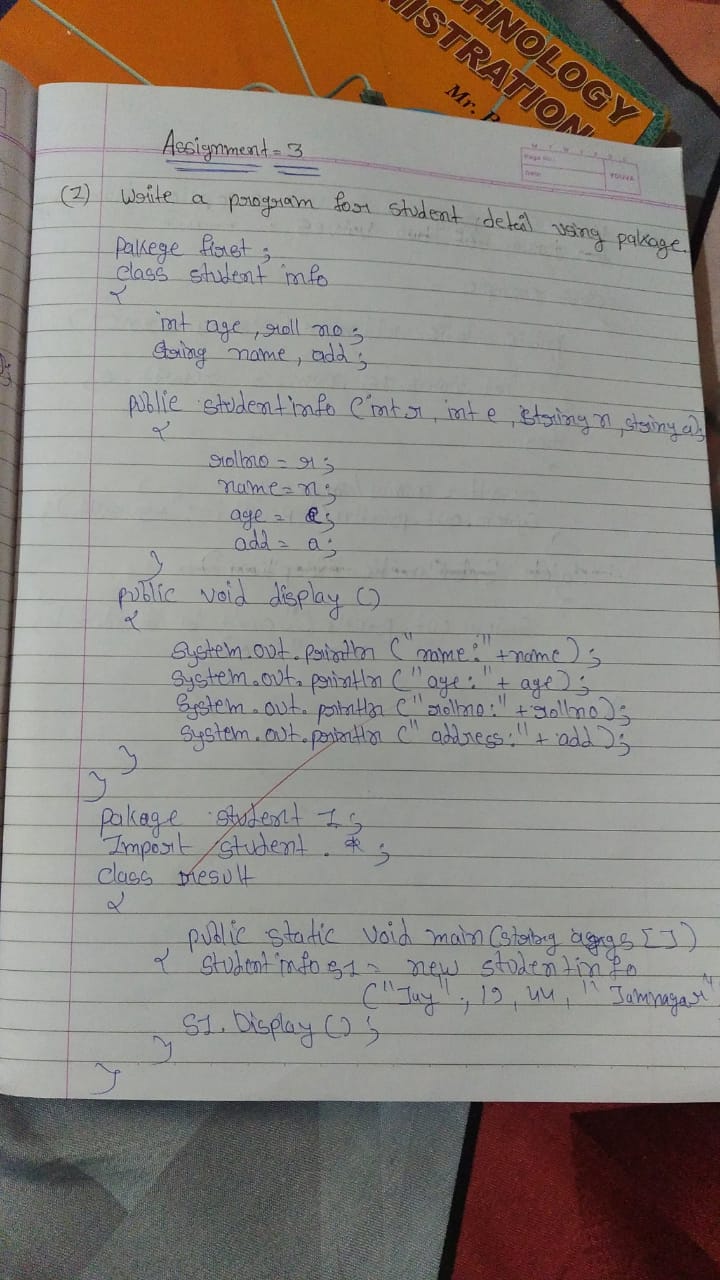 CHNOLOGY
NISTRATION
Mr. P
Assignment = 3
Page No.:
Date:
YOUVA
(1) Write a program for student detail using pakage.
Pakege first ;
class student info
{
int age, roll no ;
String name, add ;
public studentinfo (int r, int e, string n, string a);
{
rollno = r ;
name = n ;
age = e ;
add = a ;
}
public void display ()
{
System.out.println ("name:"+name) ;
System.out.println ("age:"+ age) ;
System.out.println ("rollno:" +rollno) ;
System.out.println ("address:"+ add) ;
}
}
pakage student 1 ;
Import student . * ;
class result
{
public static void main (string args [])
{ studentinfo s1 = new studentinfo
("Jay", 19, 44, "Jamnagar"
S1. Display () ;
}
}